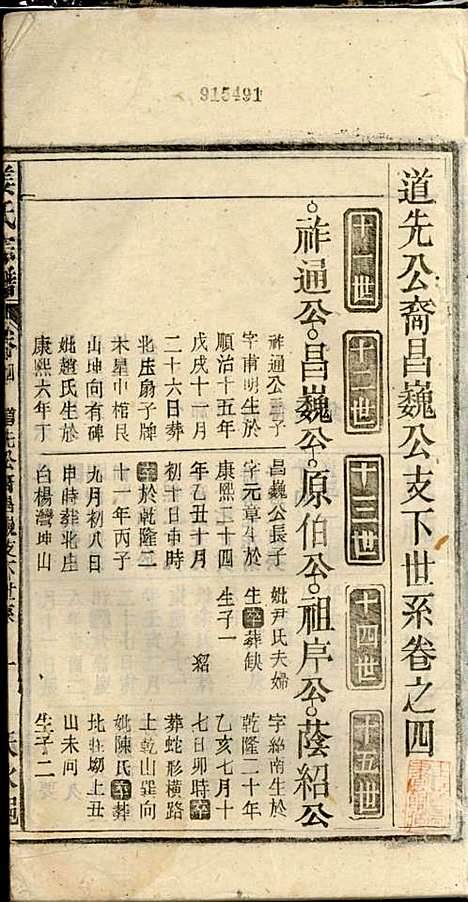 915491
道先公裔昌巍公支下世系卷之四
十一世
十二世
十三世
十四世
十五世
祚通公
昌巍公
原伯公
祖庠公
蔭紹公
字甫明生於
順治十五年
戊戌十二月
二十六日葬
北庄扇子牌
木星中棺艮
山坤向有碑
妣趙氏生於
康熙六年丁
昌巍公長子
字元章生於
康熙二十四
年乙丑十月
初十日申時
卒於乾隆二
十一年丙子
九月初八日
申時葬北庄
白楊灣坤山
妣尹氏夫婦
生卒葬缺
生子一
紹
字紹南生於
乾隆二十年
乙亥七月十
七日卯時卒
葬蛇形橫路
上乾山巽向
妣陳氏卒葬
北莊塝上丑
山未向
生子二
氏宗譜
卷四
道先公裔昌巍支下世系
一